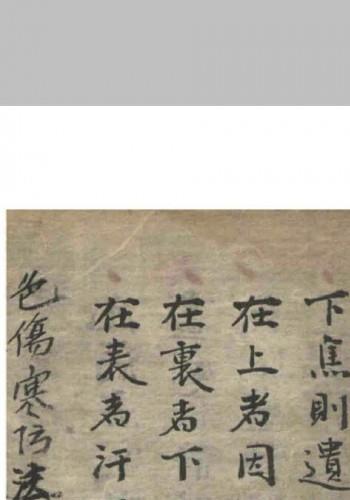 下焦則遺
在上者因
在裏者下
在表者汗
傷寒